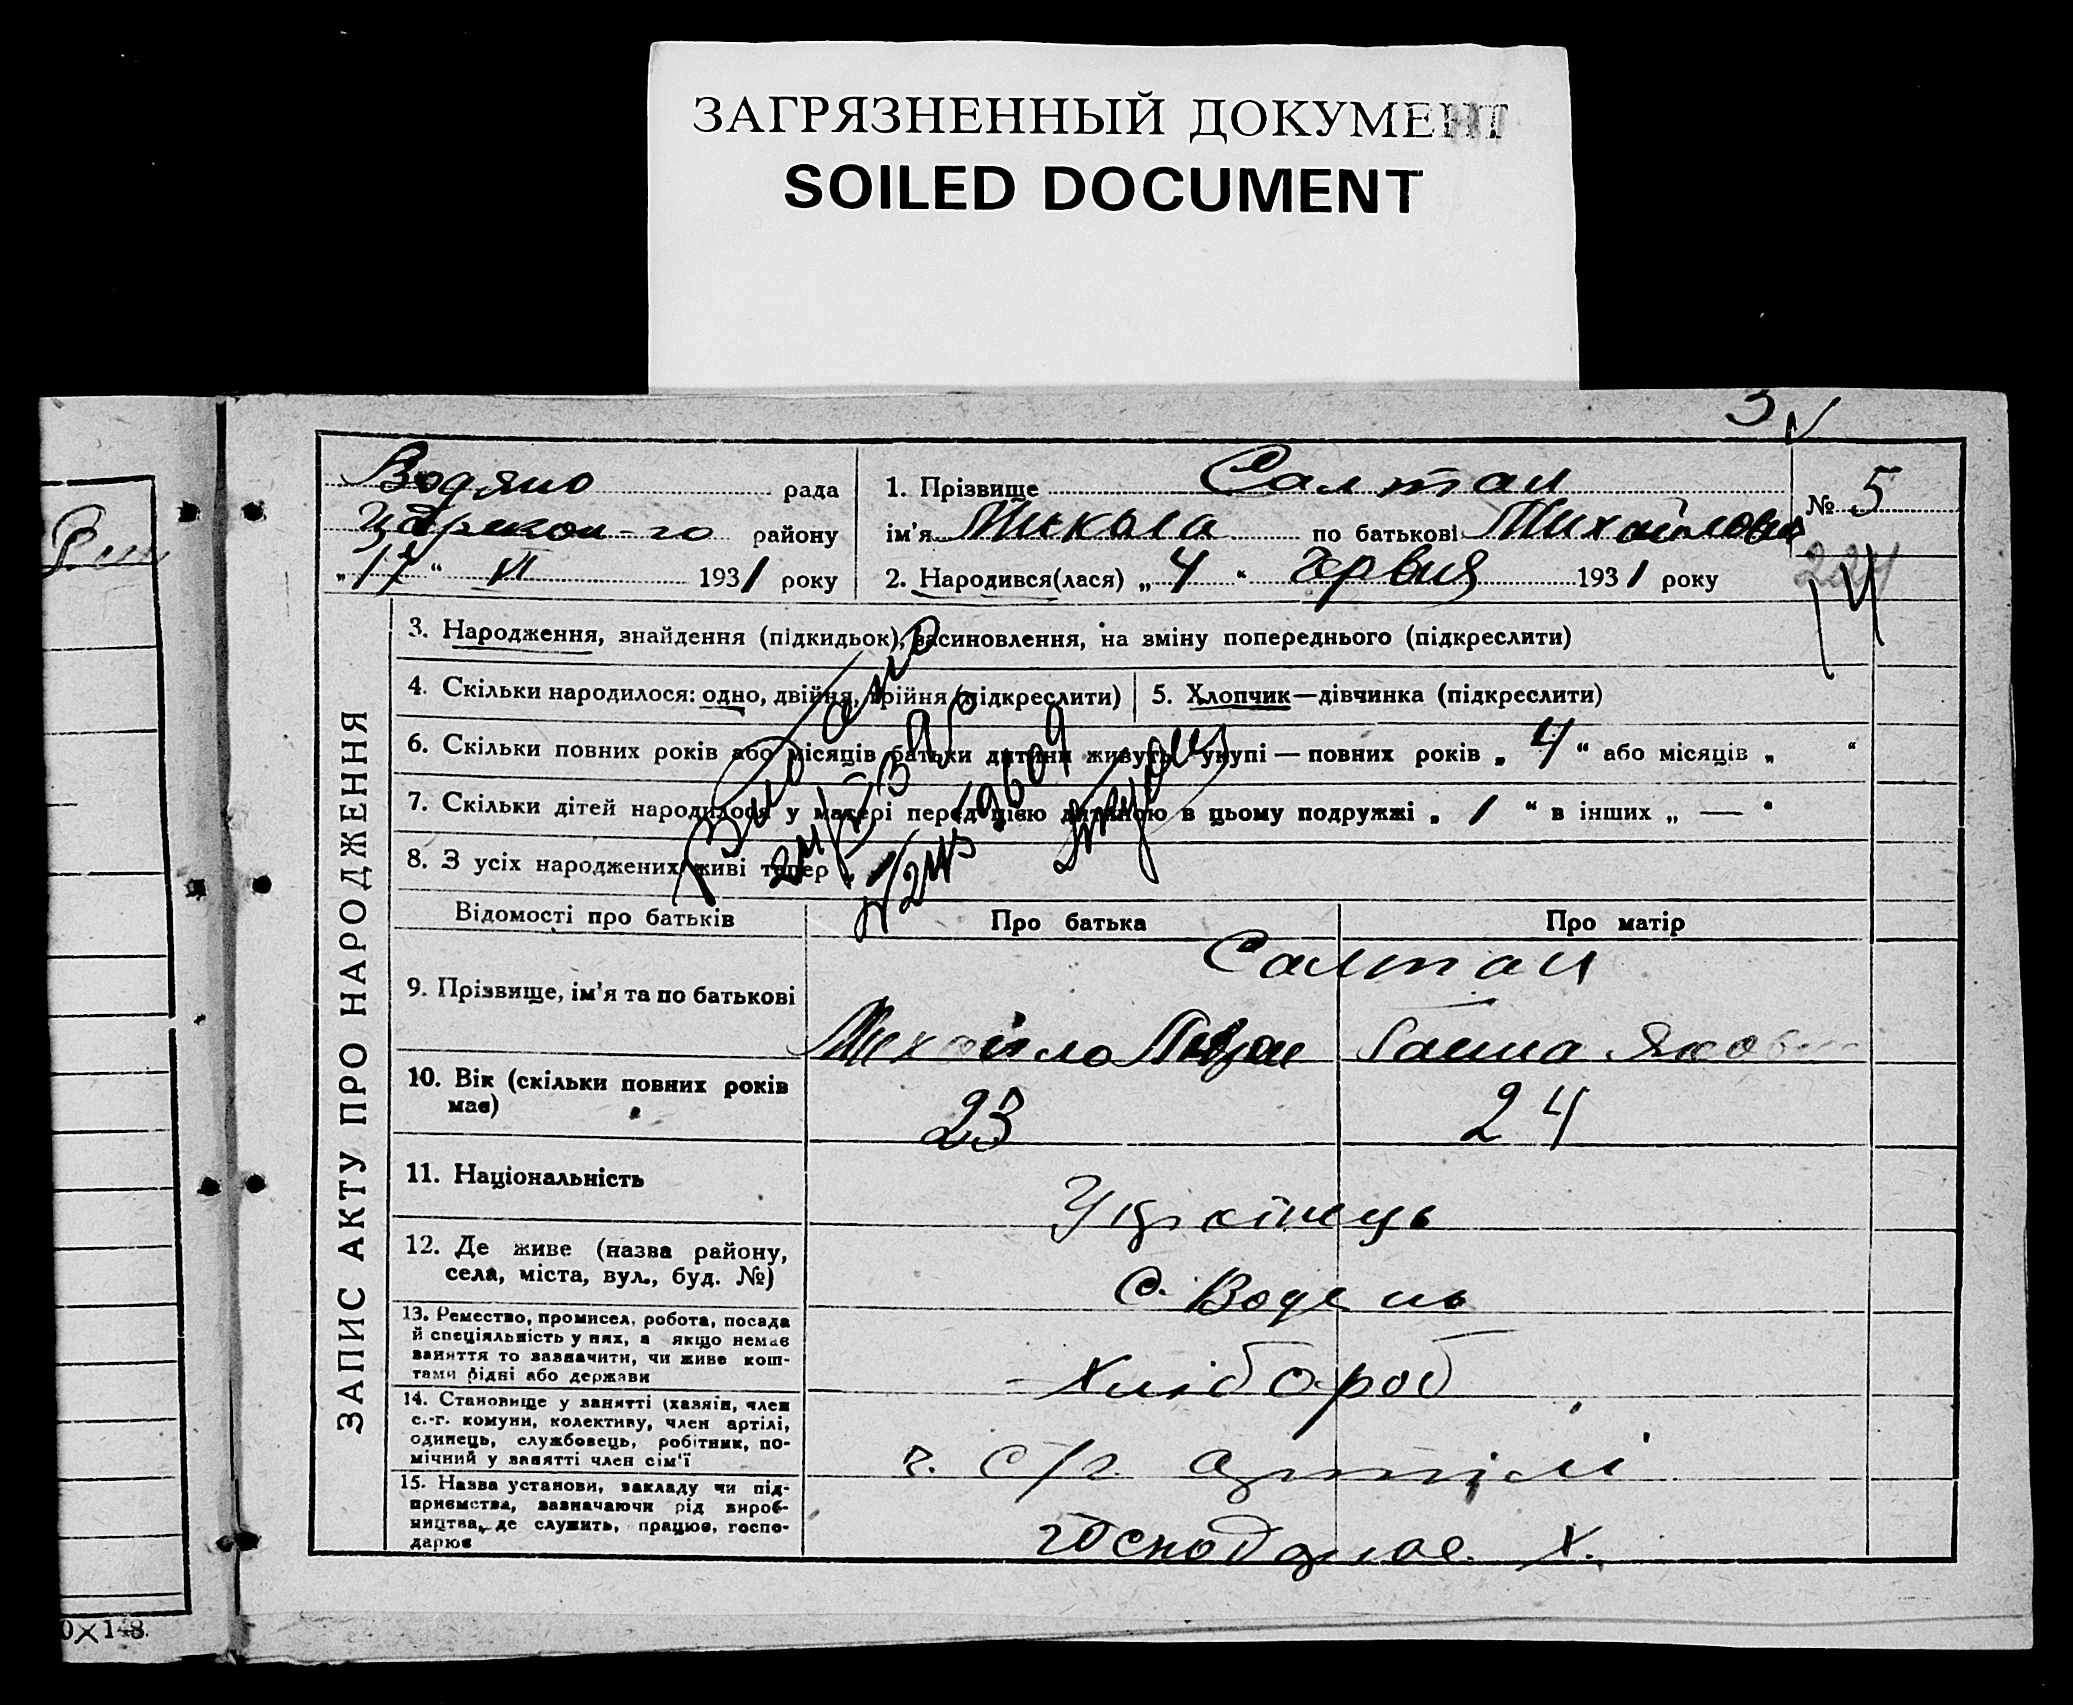 ЗАГРЯЗНЕННЫЙ ДОКУМЕНТ
SOILED DOCUMENT
3
Водяно рада
району
„ 17 “ VI 1931 року
1. Прізвище Салтан
ім'я Микола по батькові Михайлович
2. Народився(лася) „ 4 “ Червня 1931 року
№ 5
224
ЗАПИС АКТУ ПРО НАРОДЖЕННЯ
3. Народження, знайдення (підкидьок), засиновлення, на зміну попереднього (підкреслити)
4. Скільки народилося: одно, двійня, трійня (підкреслити)
5. Хлопчик—дівчинка (підкреслити)
6. Скільки повних років або місяців батьки дитини живуть укупі — повних років „ 4 “ або місяців „ “
7. Скільки дітей народилося у матері перед цією дитиною в цьому подружжі „ 1 “ в інших „ — “
8. З усіх народжених живі тепер „
Видано
Відомості про батьків
Про батька
Про матір
9. Прізвище, ім'я та по батькові
Салтан
Михайло
Ганна Яков
10. Вік (скільки повних років
має)
23
24
11. Національність
Українець
12. Де живе (назва району,
села, міста, вул., буд. №)
с. Водяно
13. Ремество, промисел, робота, посада
й спеціяльність у них, а якщо немає
заняття то зазначити, чи живе кош-
тами рідні або держави
Хлібороб
14. Становище у занятті (хазяїн, член
с.-г. комуни, колективу, член артілі,
одинець, службовець, робітник, по-
мічний у занятті член сім'ї
ч. с/г. артілі
15. Назва установи, закладу чи під-
приємства, зазначаючи рід вироб-
ництва, де служить, працює, госпо-
дарює
0×148.